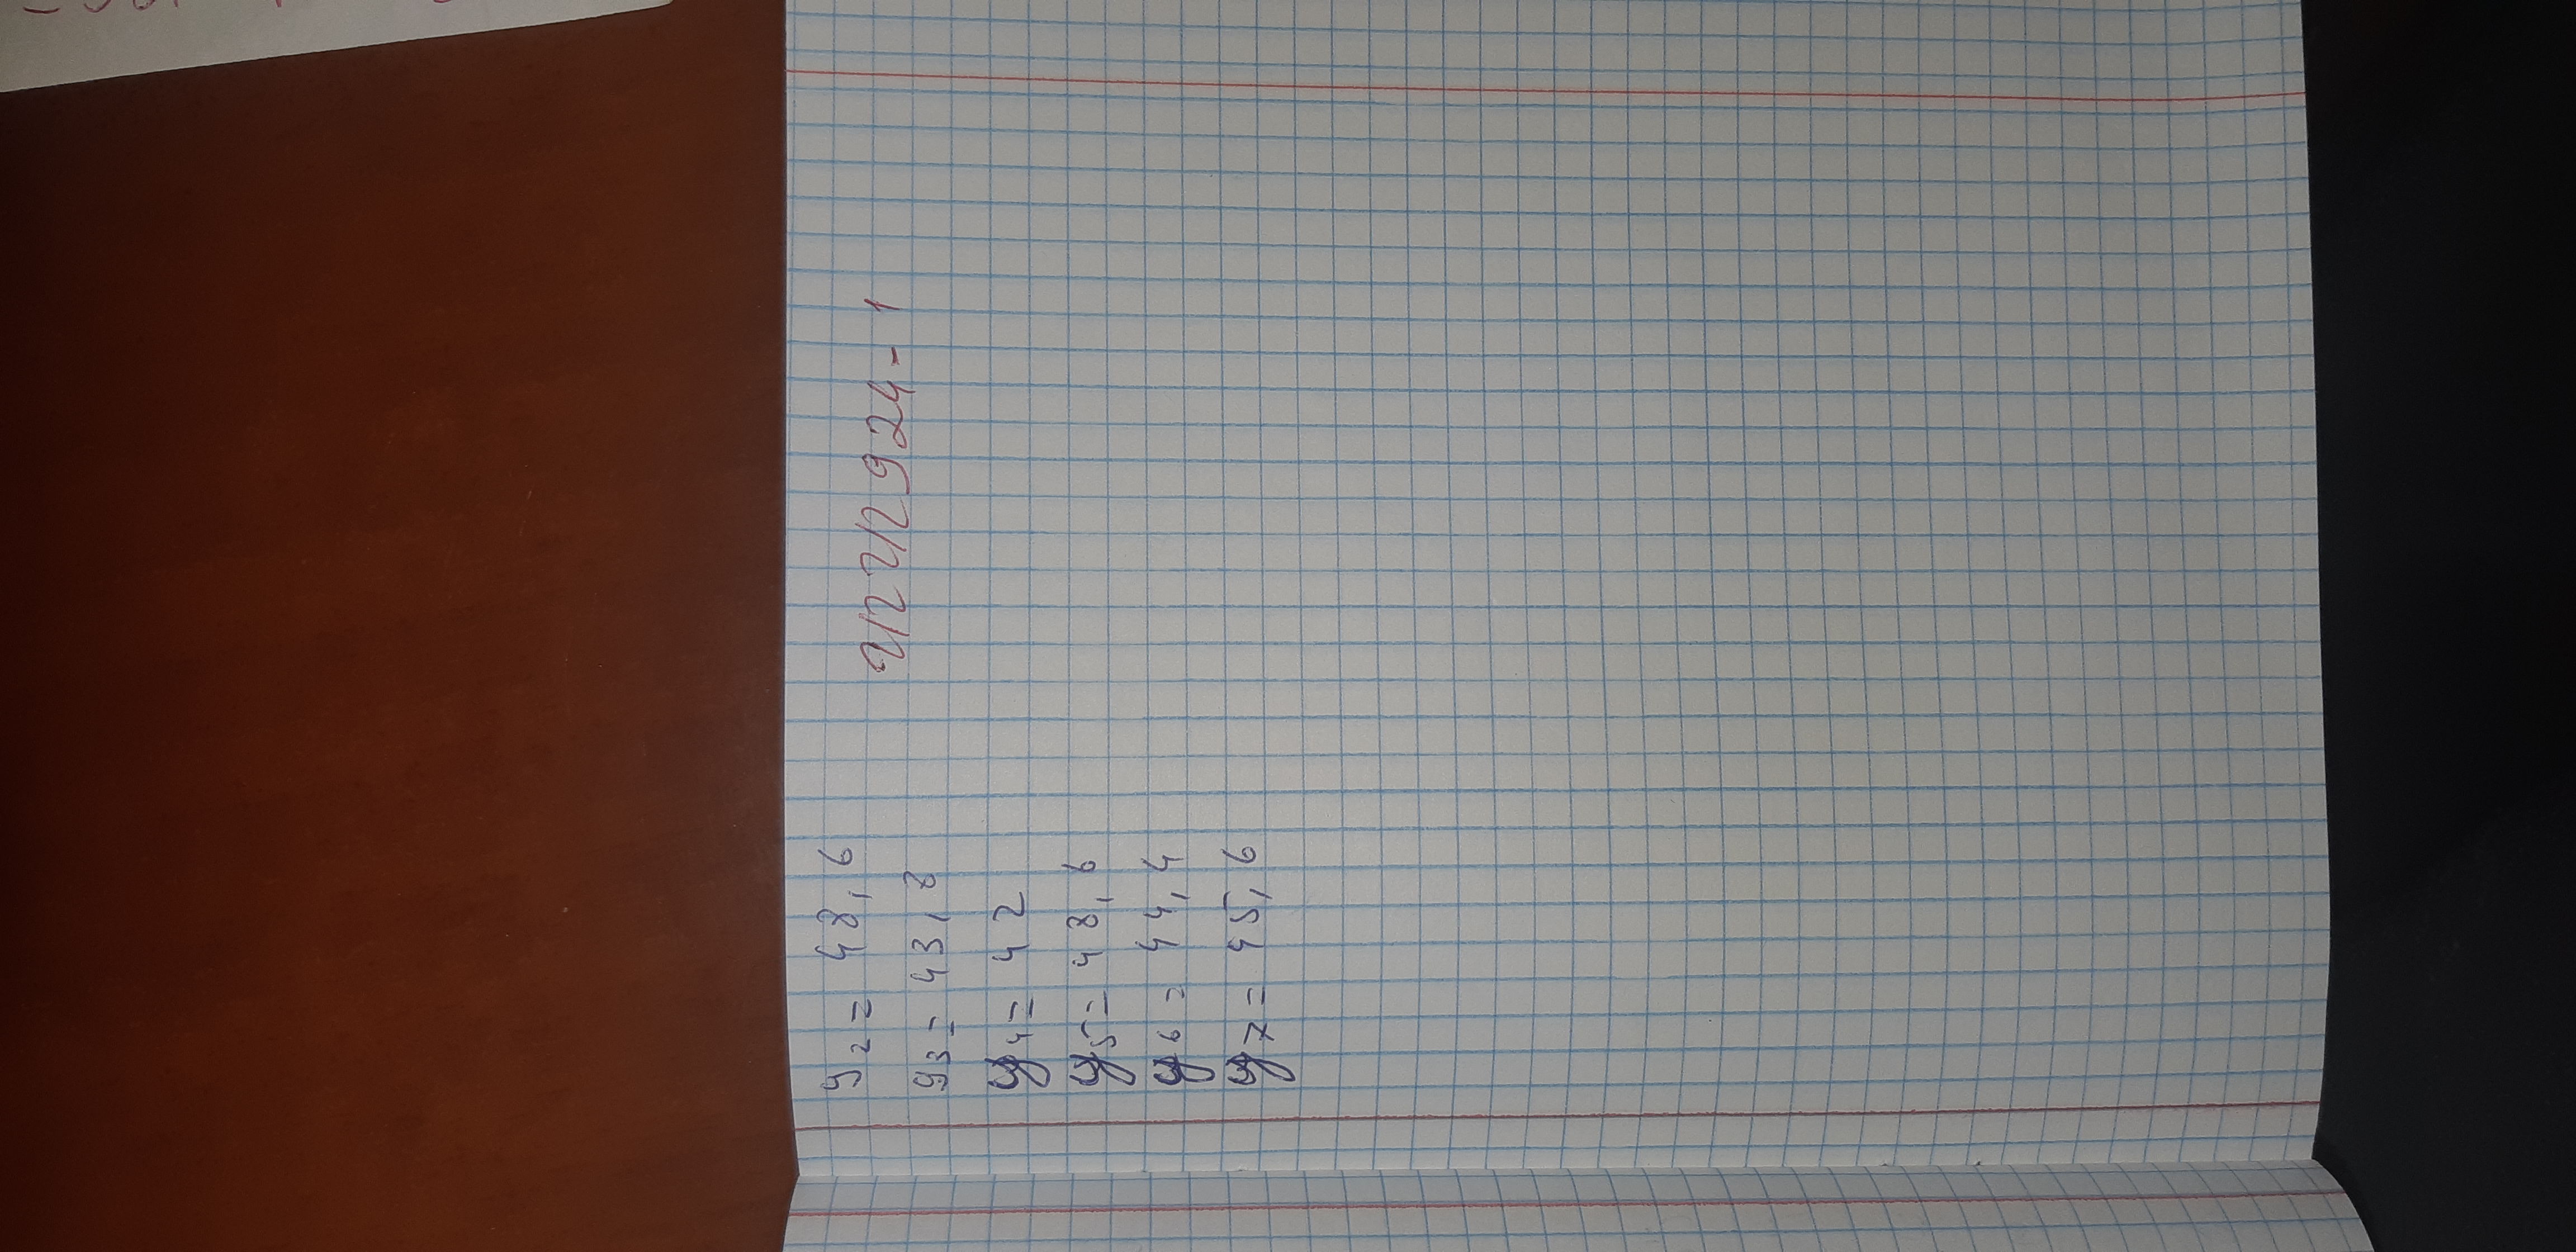 y2 = 48,6
y3 = 43,8
y4 = 42
y5 = 48,6
y6 = 44,4
y7 = 45,6
924-1